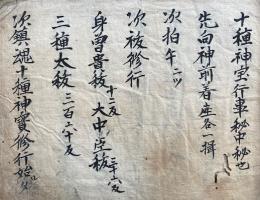 十種神宝行事秘中秘也
先向神前着座合一揖
次拍午二ツ
次祓修行
身曽貴祓十二反大中臣祓三十六反
三種太祓三百二十反
次鎮魂十種神寳修行始